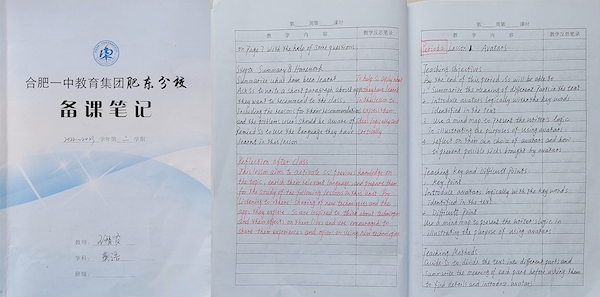 合肥一中教育集团肥东分校
备课笔记
学年第二学期
教师:
学科: 英语
班级:
第 周第 课时
教 学 内 容
教学反思笔录
on Page 7 with the help of some questions.
Step 6 Summary & Homework
Summarise what have been learnt.
Ask Ss to write a short paragraph about app
they want to recommend to the class,
including the reasons for their recommendations
and the problems users should be aware of.
Remind Ss to use the language they have
learnt in this lesson
To help Ss
they have learnt
in this lesson to
carefully
Reflection after class
This lesson aims to activate Ss' previous knowledge on
the topic, enrich them relevant language, and prepare them
for the study of the following lessons in this unit. By
listening to others' sharing of new technologies and the
apps they explore, Ss are inspired to think about technologies
and their effects on their lives and are encouraged to
share their experiences and opinions in using new technologies
第 周第 课时
教 学 内 容
教学反思笔录
Lesson 1 Avatars
Teaching Objectives
By the end of this period, Ss will be able to
1. Summarize the meaning of different parts in the text
2. introduce avatars logically with the key words
identified in the text
3. Use a mind map to present the writer's logic
in illustrating the purpose of using avatars
4. reflect on their own choice of avatars and how
to prevent possible risks brought by avatars
Teaching Key and Difficult Points
1. Key Point
Introduce avatars logically with the key words
identified in the text.
2. Difficult Point
Use a mind map to present the writer's logic in
illustrating the purpose of using avatars
Teaching Methods
Guide Ss to divide the text into different parts and
summarize the meaning of each part before asking them
to find details and introduce avatars